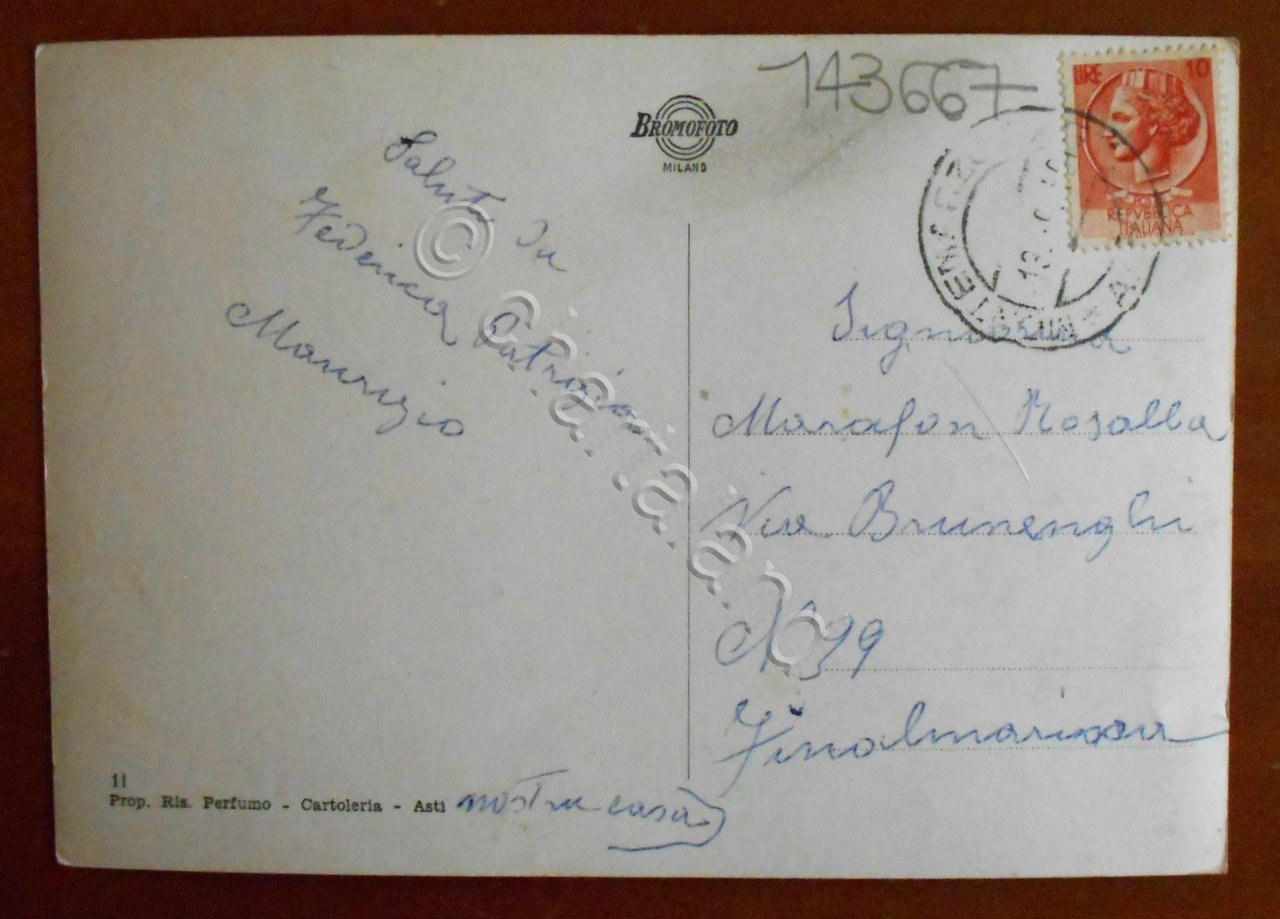 143667
BROMOFOTO
MILANO
LIRE 10
REPVBBLICA
ITALIANA
Saluti da
Federica Patrizia
Maurizio
Signorina
Marafon Rosalba
Via Brunenghi
N 99
Finalmarina
11
Prop. Ris. Perfumo - Cartoleria - Asti
nostra casa